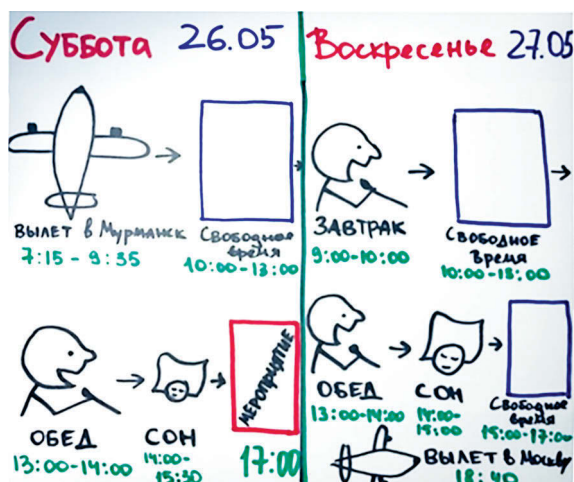 Суббота 26.05
Вылет в Мурманск
7:15 - 9:35
Свободное
время
10:00-13:00
Обед
13:00-14:00
Сон
14:00-
15:30
Мероприятие
17:00
Воскресенье 27.05
Завтрак
9:00-10:00
Свободное
Время
10:00-13:00
Обед
13:00-14:00
Сон
14:00-
15:00
Свободное
время
15:00-17:00
Вылет в Москву
18:40